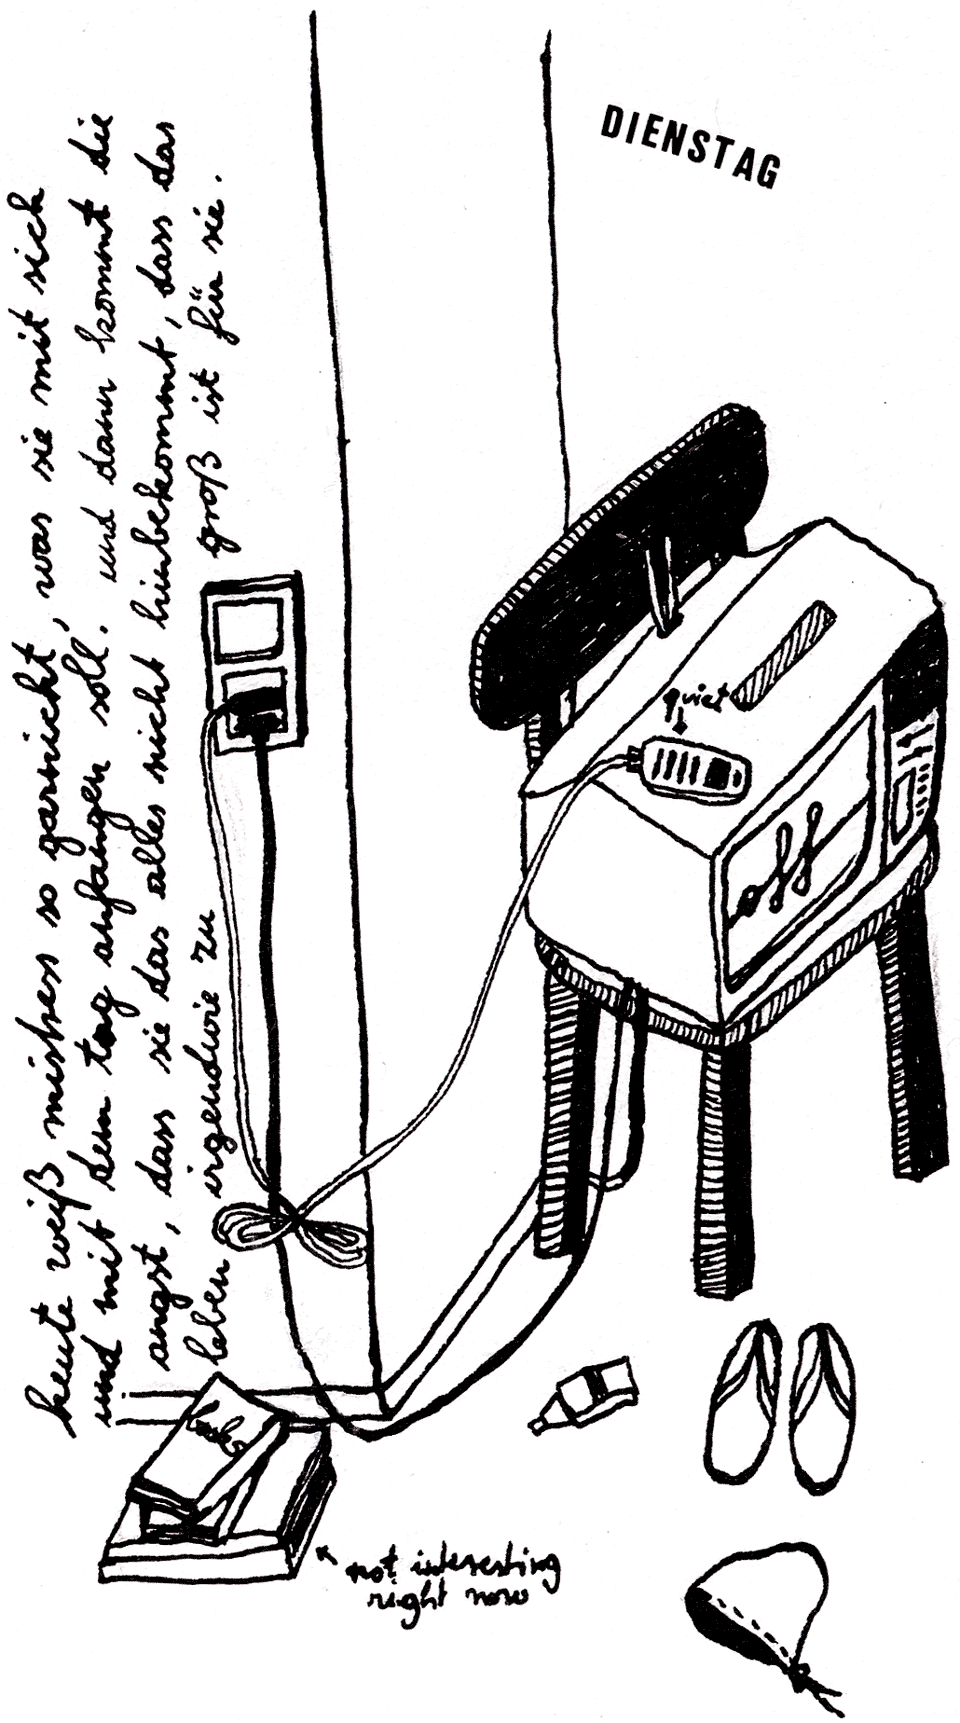 DIENSTAG
heute weiß mistress so garnicht, was sie mit sich
und mit dem tag anfangen soll. und dann kommt die
angst, dass sie das alles nicht hinbekommt, dass das
leben irgendwie zu groß ist für sie.
quiet
off
books
not interesting
right now